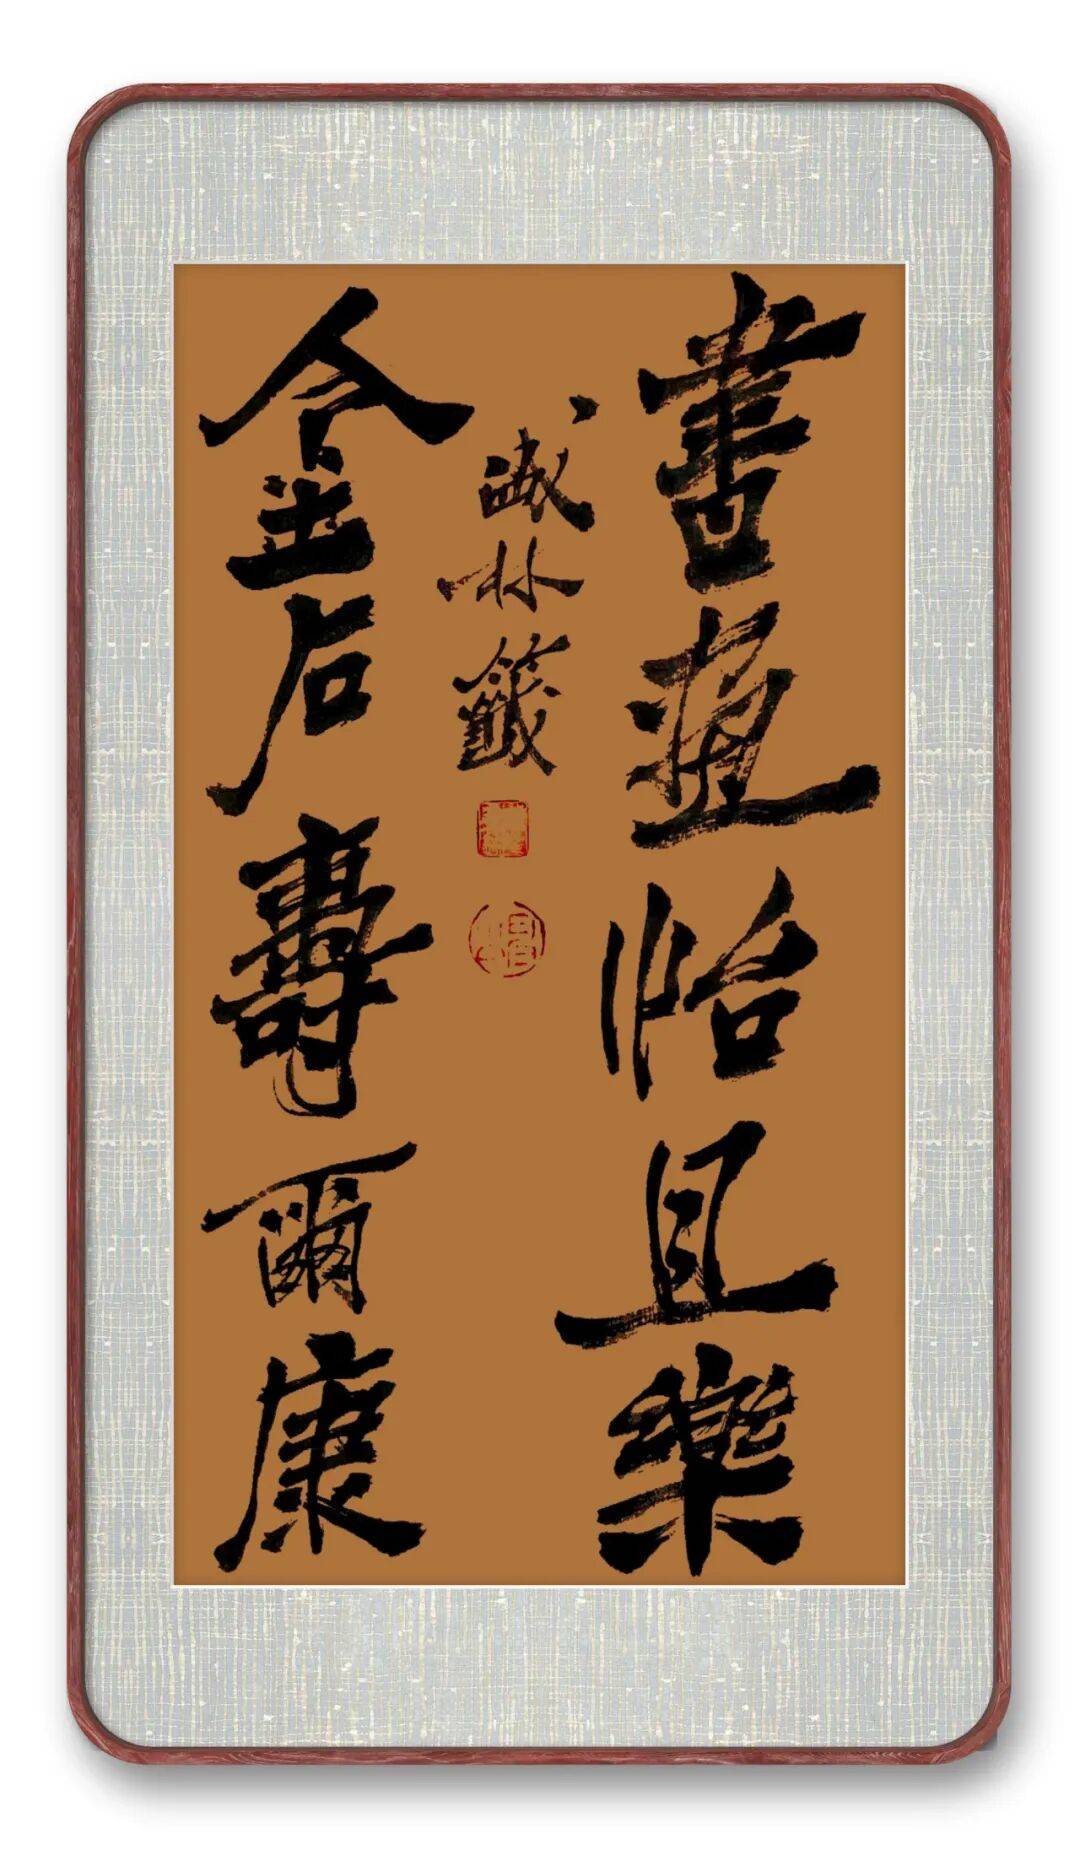 書畫怡且樂
金石壽爾康
林籖